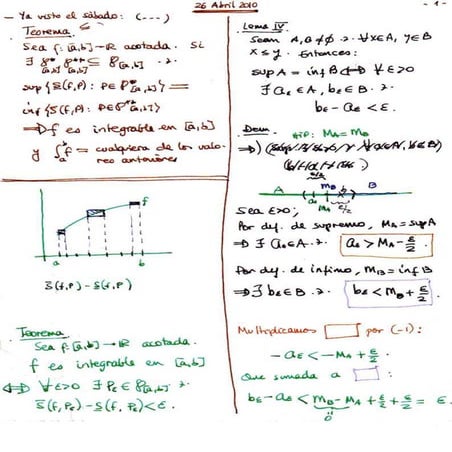 26 Abril 2010
- 1 -
- Ya visto el sábado: (---)
Teorema
Sea f: [a,b] → ℝ acotada. Si
∃ 𝒫*[a,b] 𝒫**[a,b] ⊆ 𝒫[a,b] ∙∋∙
sup {S(f,P): P∈𝒫*[a,b]} =
inf {S̄(f,P): P∈𝒫**[a,b]}
⇒ f es integrable en [a,b]
y ∫ₐᵇ f = cualquiera de los valo-
res anteriores
f
a b
S̄(f,P) - S(f,P)
Teorema
Sea f: [a,b] → ℝ acotada.
f es integrable en [a,b]
⇔ ∀ε>0 ∃ Pε ∈ 𝒫[a,b] ∙∋∙
S̄(f,Pε) - S(f,Pε) < ε.
Lema IV
Sean A,B ≠ ∅ ∙∋∙ ∀x∈A, y∈B
x ≤ y. Entonces:
sup A = inf B ⇔ ∀ε>0
∃ aε∈A, bε∈B ∙∋∙
bε - aε < ε.
Dem
Hip: MA = mB
⇒)
A mB B
aε MA ε/2
Sea ε>0,
Por def. de supremo, MA = sup A
⇒ ∃ aε∈A ∙∋∙ aε > MA - ε/2
Por def. de ínfimo, mB = inf B
⇒ ∃ bε∈B ∙∋∙ bε < mB + ε/2
Multiplicamos por (-1):
-aε < -MA + ε/2
Que sumada a :
bε - aε < mB - MA + ε/2 + ε/2 = ε.
0